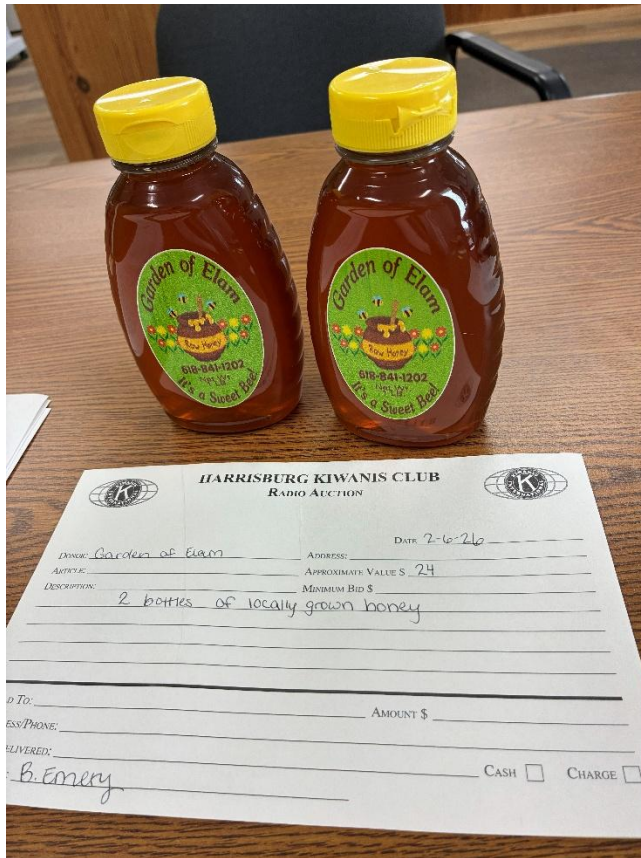 Garden of Elam
Raw Honey
618-841-1202
Net Wt.
It's a Sweet Bee!
Garden of Elam
Raw Honey
618-841-1202
Net Wt.
It's a Sweet Bee!
HARRISBURG KIWANIS CLUB
RADIO AUCTION
K K
DATE 2-6-26
DONOR: Garden of Elam ADDRESS:
ARTICLE: APPROXIMATE VALUE $ 24
DESCRIPTION: MINIMUM BID $
2 bottles of locally grown honey
D TO: AMOUNT $
ESS/PHONE:
ELIVERED:
: B. Emery CASH CHARGE